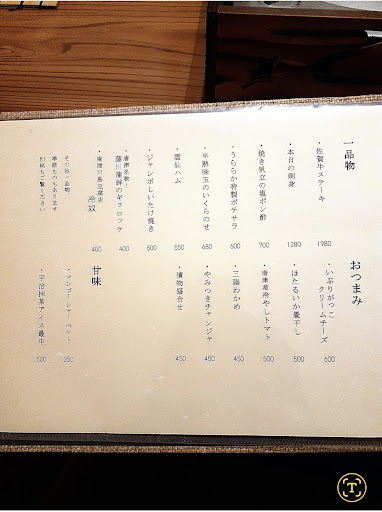 一品物
・佐賀牛ステーキ 1980
・本日の刺身 1280
・焼き帆立の塩ポン酢 700
・うららか特製ポテサラ 600
・半熟味玉のいくらのせ 680
・雲仙ハム 550
・ジャンボしいたけ焼き 500
・唐津名物！
藤川蒲鉾のギョロッケ 400
・唐津川島豆腐店
冷奴 400
その他一品物
季節ものもあります
別紙もご覧ください
おつまみ
・いぶりがっこ
クリームチーズ 600
・ほたるいか畳干し 500
・唐津産冷やしトマト 500
・三陸わかめ 450
・やみつきチャンジャ 450
・漬物盛合せ 450
甘味
・マンゴーシャーベット 350
・宇治抹茶アイス最中 500